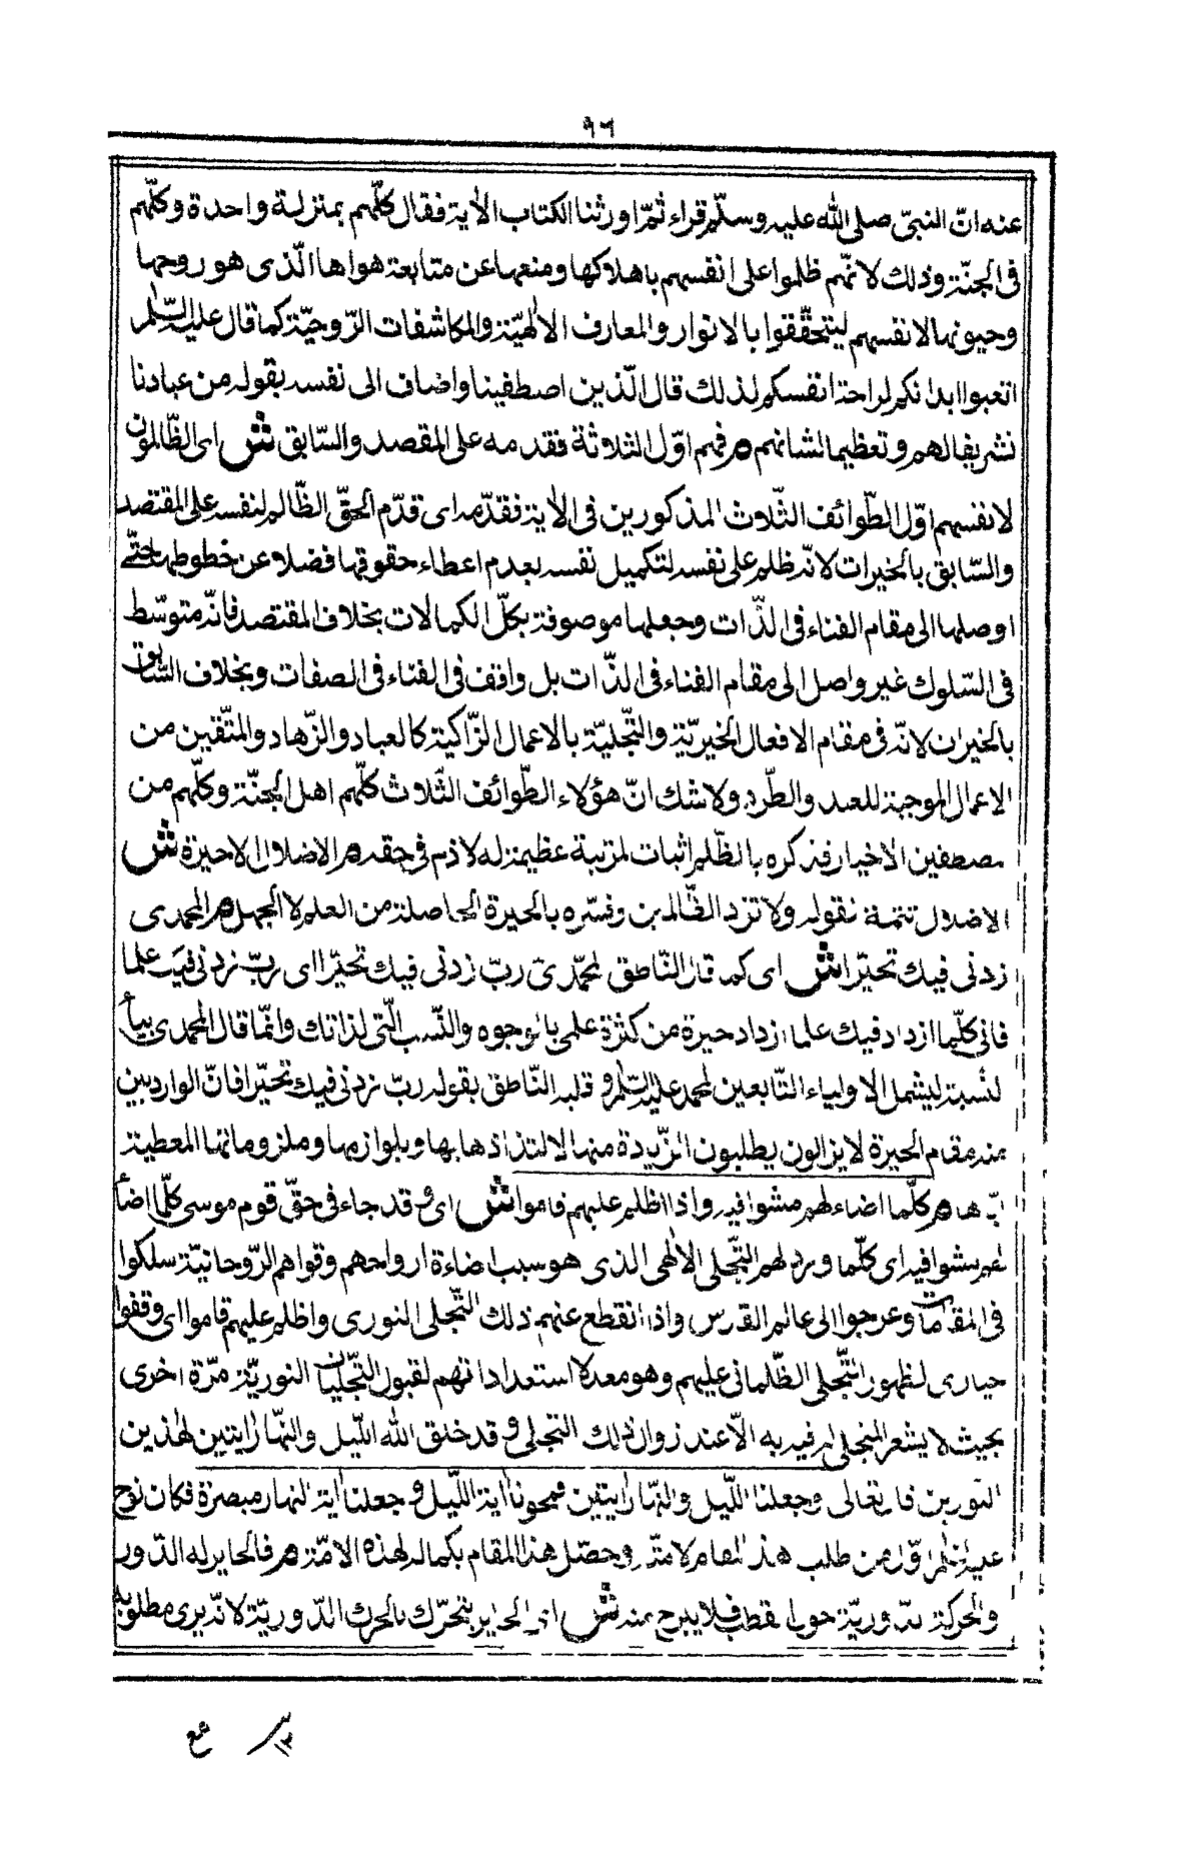 ٩٦
عنه انّ النبىّ صلى الله عليه وسلّم قراء ثمّ اورثنا الكتاب الأية فقال كلّهم بمنزلة واحدة وكلّهم
فى الجنّة وذلك لانّهم ظلموا على انفسهم باهلاكها ومنعها عن متابعة هواها الّذى هو روحها
وحيوتها لانفسهم ليتحقّقوا بالانوار والمعارف الالٰهيّة والمكاشفات الرّوحيّة كما قال عليه السّلٰم
اتعبوا ابدانكم لراحة انفسكم لذلك قال الّذين اصطفينا واضاف الى نفسه بقوله من عبادنا
تشريفا لهم وتعظيما لشانهم ﻫ فهم اوّل الثلاثة فقدمه على المقصد والسّابق ش اى الظّالمون
لانفسهم اوّل الطّوائف الثّلاث المذكورين فى الأية فقدّمه اى قدّم الحقّ الظّالم لنفسه على المقتصد
والسّابق بالخيرات لانّه ظلم على نفسه لتكميل نفسه بعدم اعطاء حقوقها فضلا عن خطوطها حتّى
اوصلها الى مقام الفناء فى الذّات وجعلها موصوفة بكلّ الكمالات بخلاف المقتصد فانّه متوسّط
فى السّلوك غير واصل الى مقام الفناء فى الذّات بل واقف فى الفناء فى الصفات وبخلاف السّابق
بالخيرات لانّه فى مقام الافعال الخيريّة والتّجلّيّة بالاعمال الزّاكية كالعباد والزّهاد والمتّقين من
الاعمال الموجبة للعبد والطّرد ولاشك انّ هؤلاء الطّوائف الثّلاث كلّهم اهل الجنّة وكلّهم من
مصطفين الاخيار فذكره بالظّلم اثبات لمرتبة عظيمة له لاذم فى حقه ﻫ الاضلالا الاحيرة ش
الاضلال تتمة لقوله ولا تزد الظّالمين وفسّره بالحيرة الحاصلة من العلم لا الجهل ﻫ المحمدى
زدنى فيك تحيّرا ش اى كما قال النّاطق لمحمّدىّ ربّ زدنى فيك تحيّرا اى ربّ زدنى فيك علما
فانى كلّما ازداد فيك علما ازداد حيرة من كثرة علمى بالوجوه والنّسب الّتى لذاتك وانّما قال المحمدى بيأ
لنسبة ليشمل الاولياء التّابعين لمحمد عليه السّلٰم وقلبه النّاطق بقوله ربّ زدنى فيك تحيّرا فانّ الواردين
منه مقام الحيرة لايزالون يطلبون الزّيدة منها لالتذاذها بها وبلوازمها وملزوماتها المعطية
ﻫ كلّما اضاء لهم مشوا فيه واذا اظلم عليهم قاموا ش اى وقد جاء فى حقّ قوم موسى كلّما اضأ
لهم مشوا فيه اى كلّما ورد لهم التّجلى الالٰهى الذى هو سبب اضاءة ارواحهم وقواهم الرّوحانيّة سلكوا
فى المقامات وعرجوا الى عالم القدس واذا انقطع عنهم ذلك التّجلى النورى واظلم عليهم قاموا اى وقفوا
حيارى لظهور التّجلى الظّلمانى عليهم وهو معد لاستعداداتهم لقبول التّجلّيات النوريّة مرّة اخرى
بحيث لايشعر المتجلى لم فيه به الاّ عند زوال ذلك التجلى وقد خلق الله اللّيل والنّهار أيتين لهذين
النورين قال تعالى وجعلنا اللّيل والنّهار أيتين فمحونا أية اللّيل وجعلنا أية النهار مبصرة فكان نوح
اوّل من طلب هذا المقام لامته وحصّل هذا المقام بكماله لهذه الامّة ﻫ فالحاير له الدّور
والحركة الدّوريّة حول القطب فلا يبرح منه ش اى الحاير يتحرّك بالحركة الدّوريّة لانّه يرى مطلوبه